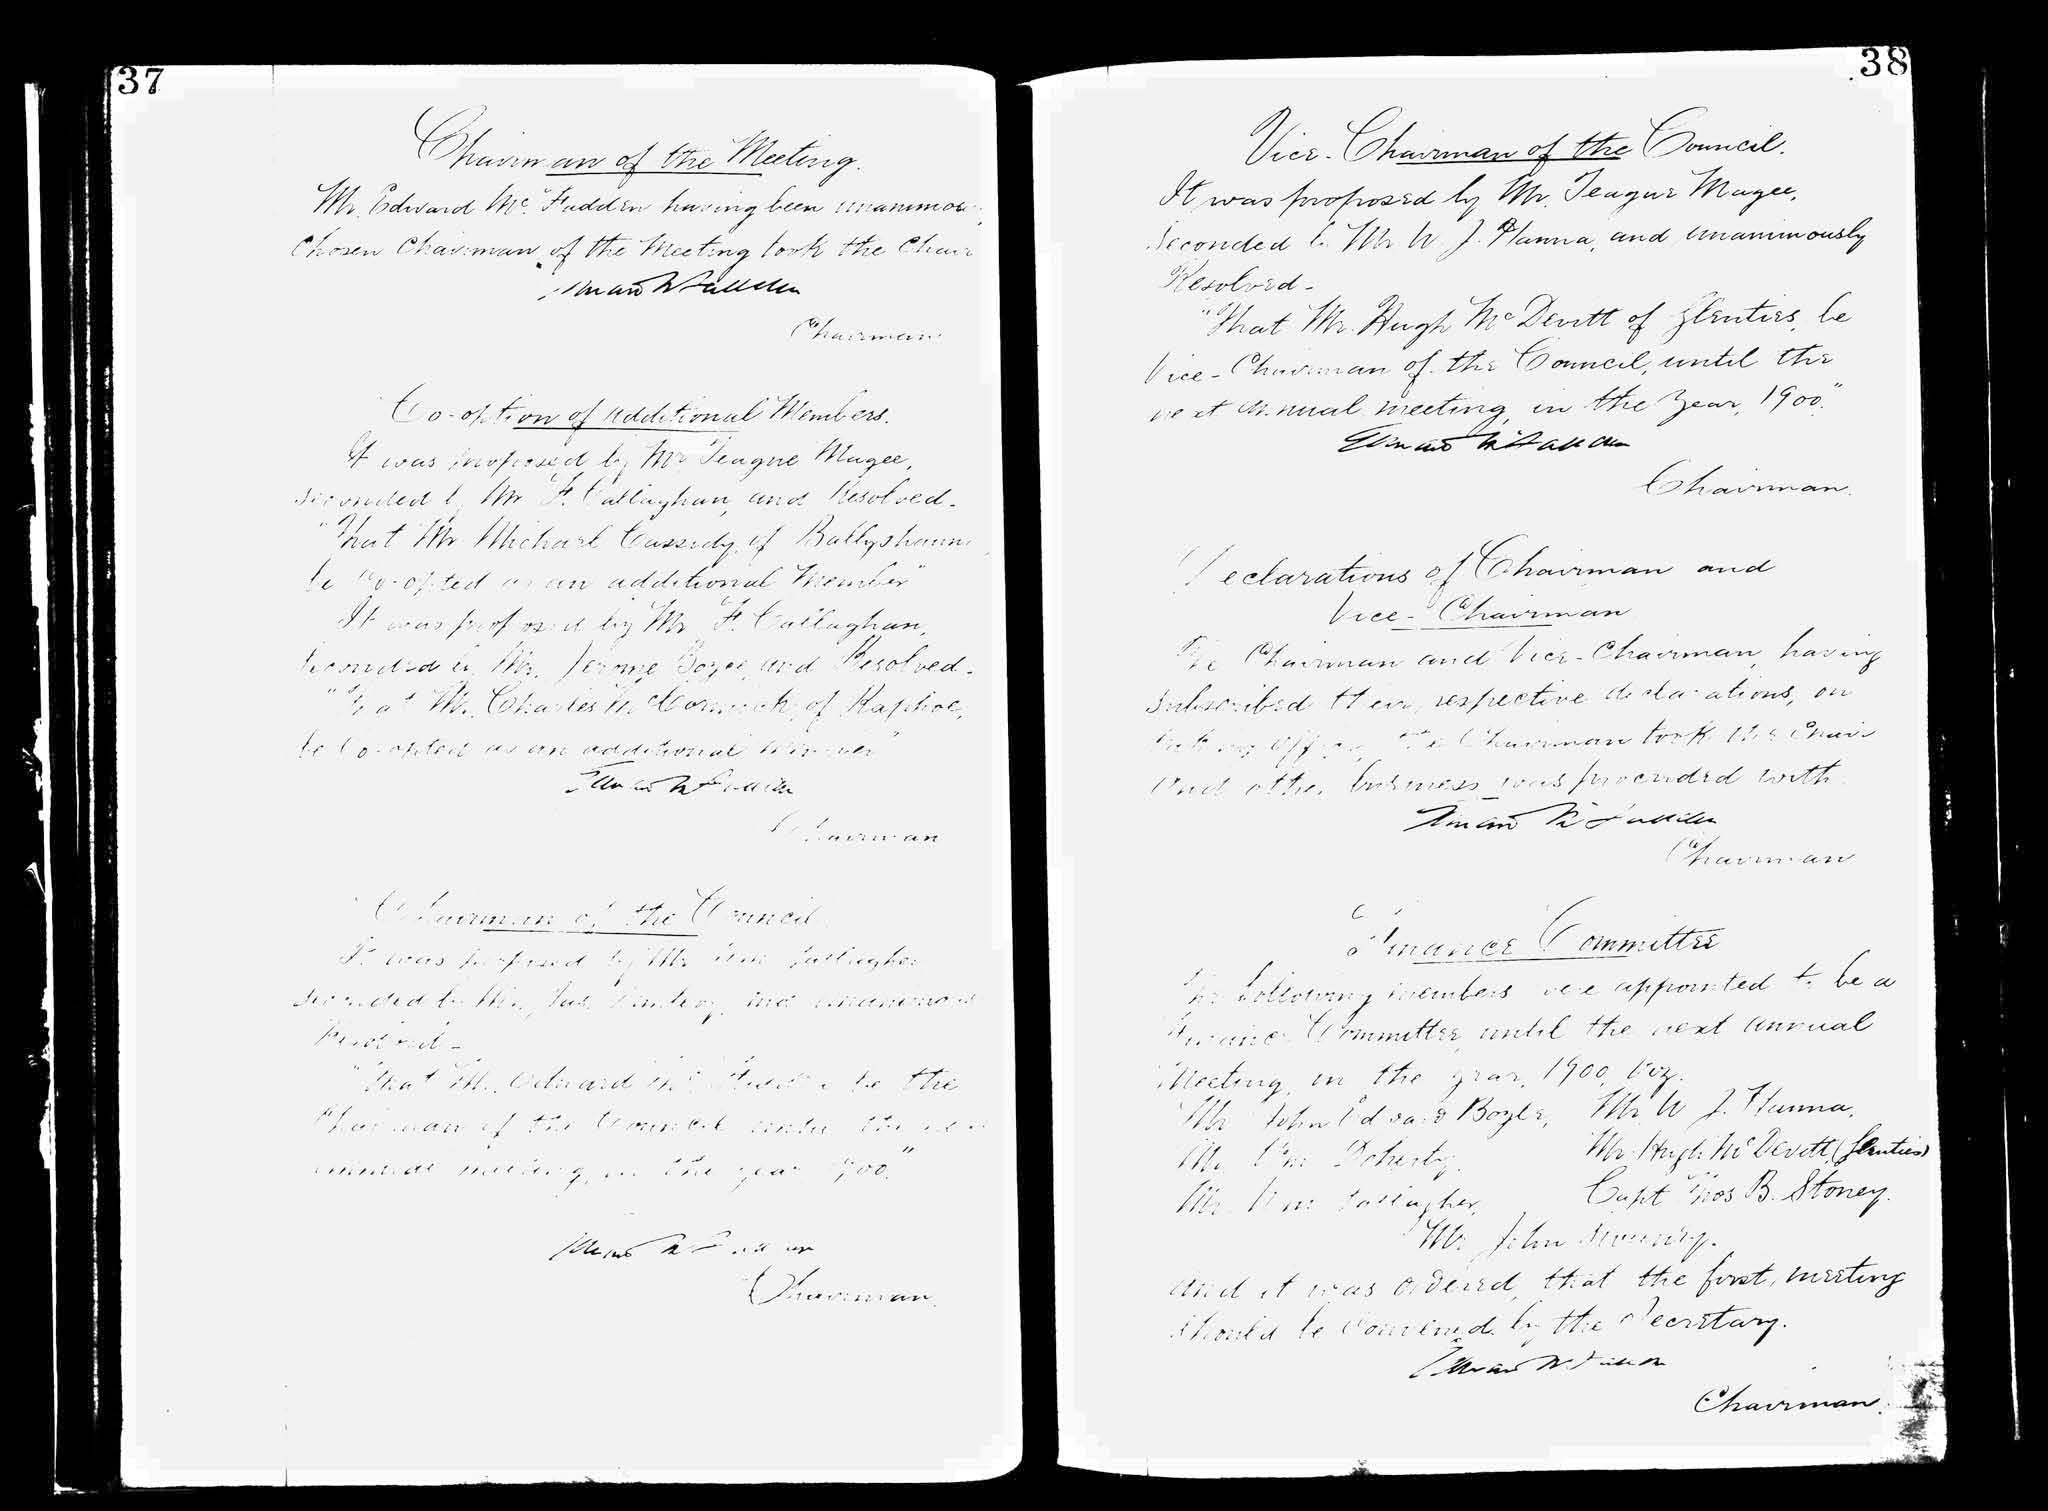 37
Chairman of the Meeting.
Mr. Edward McFadden having been unanimous
chosen Chairman of the Meeting took the Chair
Edward McFadden
Chairman
Co-option of additional Members.
It was proposed by Mr Teague Magee,
seconded by Mr F. Callaghan, and Resolved-
"That Mr Michael Cassidy of Ballyshannon
be Co-opted as an additional Member"
It was proposed by Mr F. Callaghan,
seconded by Mr. Jerome Boyce, and Resolved-
"That Mr. Charles McCormick, of Raphoe,
be Co-opted as an additional Member"
Edward McFadden
Chairman
Chairman of the Council
It was proposed by Mr Wm Gallagher
seconded by Mr. Jas. and unanimous
Resolved-
"That Mr. Edward McFadden be the
Chairman of the Council until the next
annual meeting, in the year 1900."
Edward McFadden
Chairman.
38
Vice-Chairman of the Council.
It was proposed by Mr. Teague Magee,
seconded by Mr W J. Hanna, and unanimously
Resolved-
"That Mr. Hugh McDevitt of Glenties, be
Vice-Chairman of the Council, until the
next annual meeting, in the Year, 1900."
Edward McFadden
Chairman.
Declarations of Chairman and
Vice-Chairman
The Chairman and Vice-Chairman, having
subscribed their respective declarations, on
taking office, the Chairman took the Chair
and other business was proceeded with.
Edward McFadden
Chairman
Finance Committee
The following members were appointed to be a
Finance Committee, until the next annual
Meeting, in the year, 1900, viz.
Mr John Edward Boyle, Mr W J. Hanna,
Mr Wm Doherty, Mr Hugh McDevitt, (Glenties)
Mr. Wm Gallagher, Capt Thos B. Stoney.
Mr John Sweeney.
and it was ordered, that the first, meeting
should be convened by the Secretary.
Edward McFadden
Chairman.